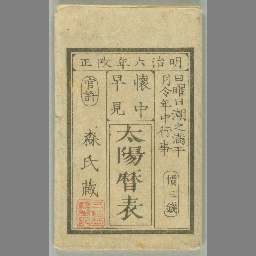 明治六年改正
日曜日潮之満干
月令年中行事
價二錢
懐中
早見
太陽暦表
官許
森氏藏